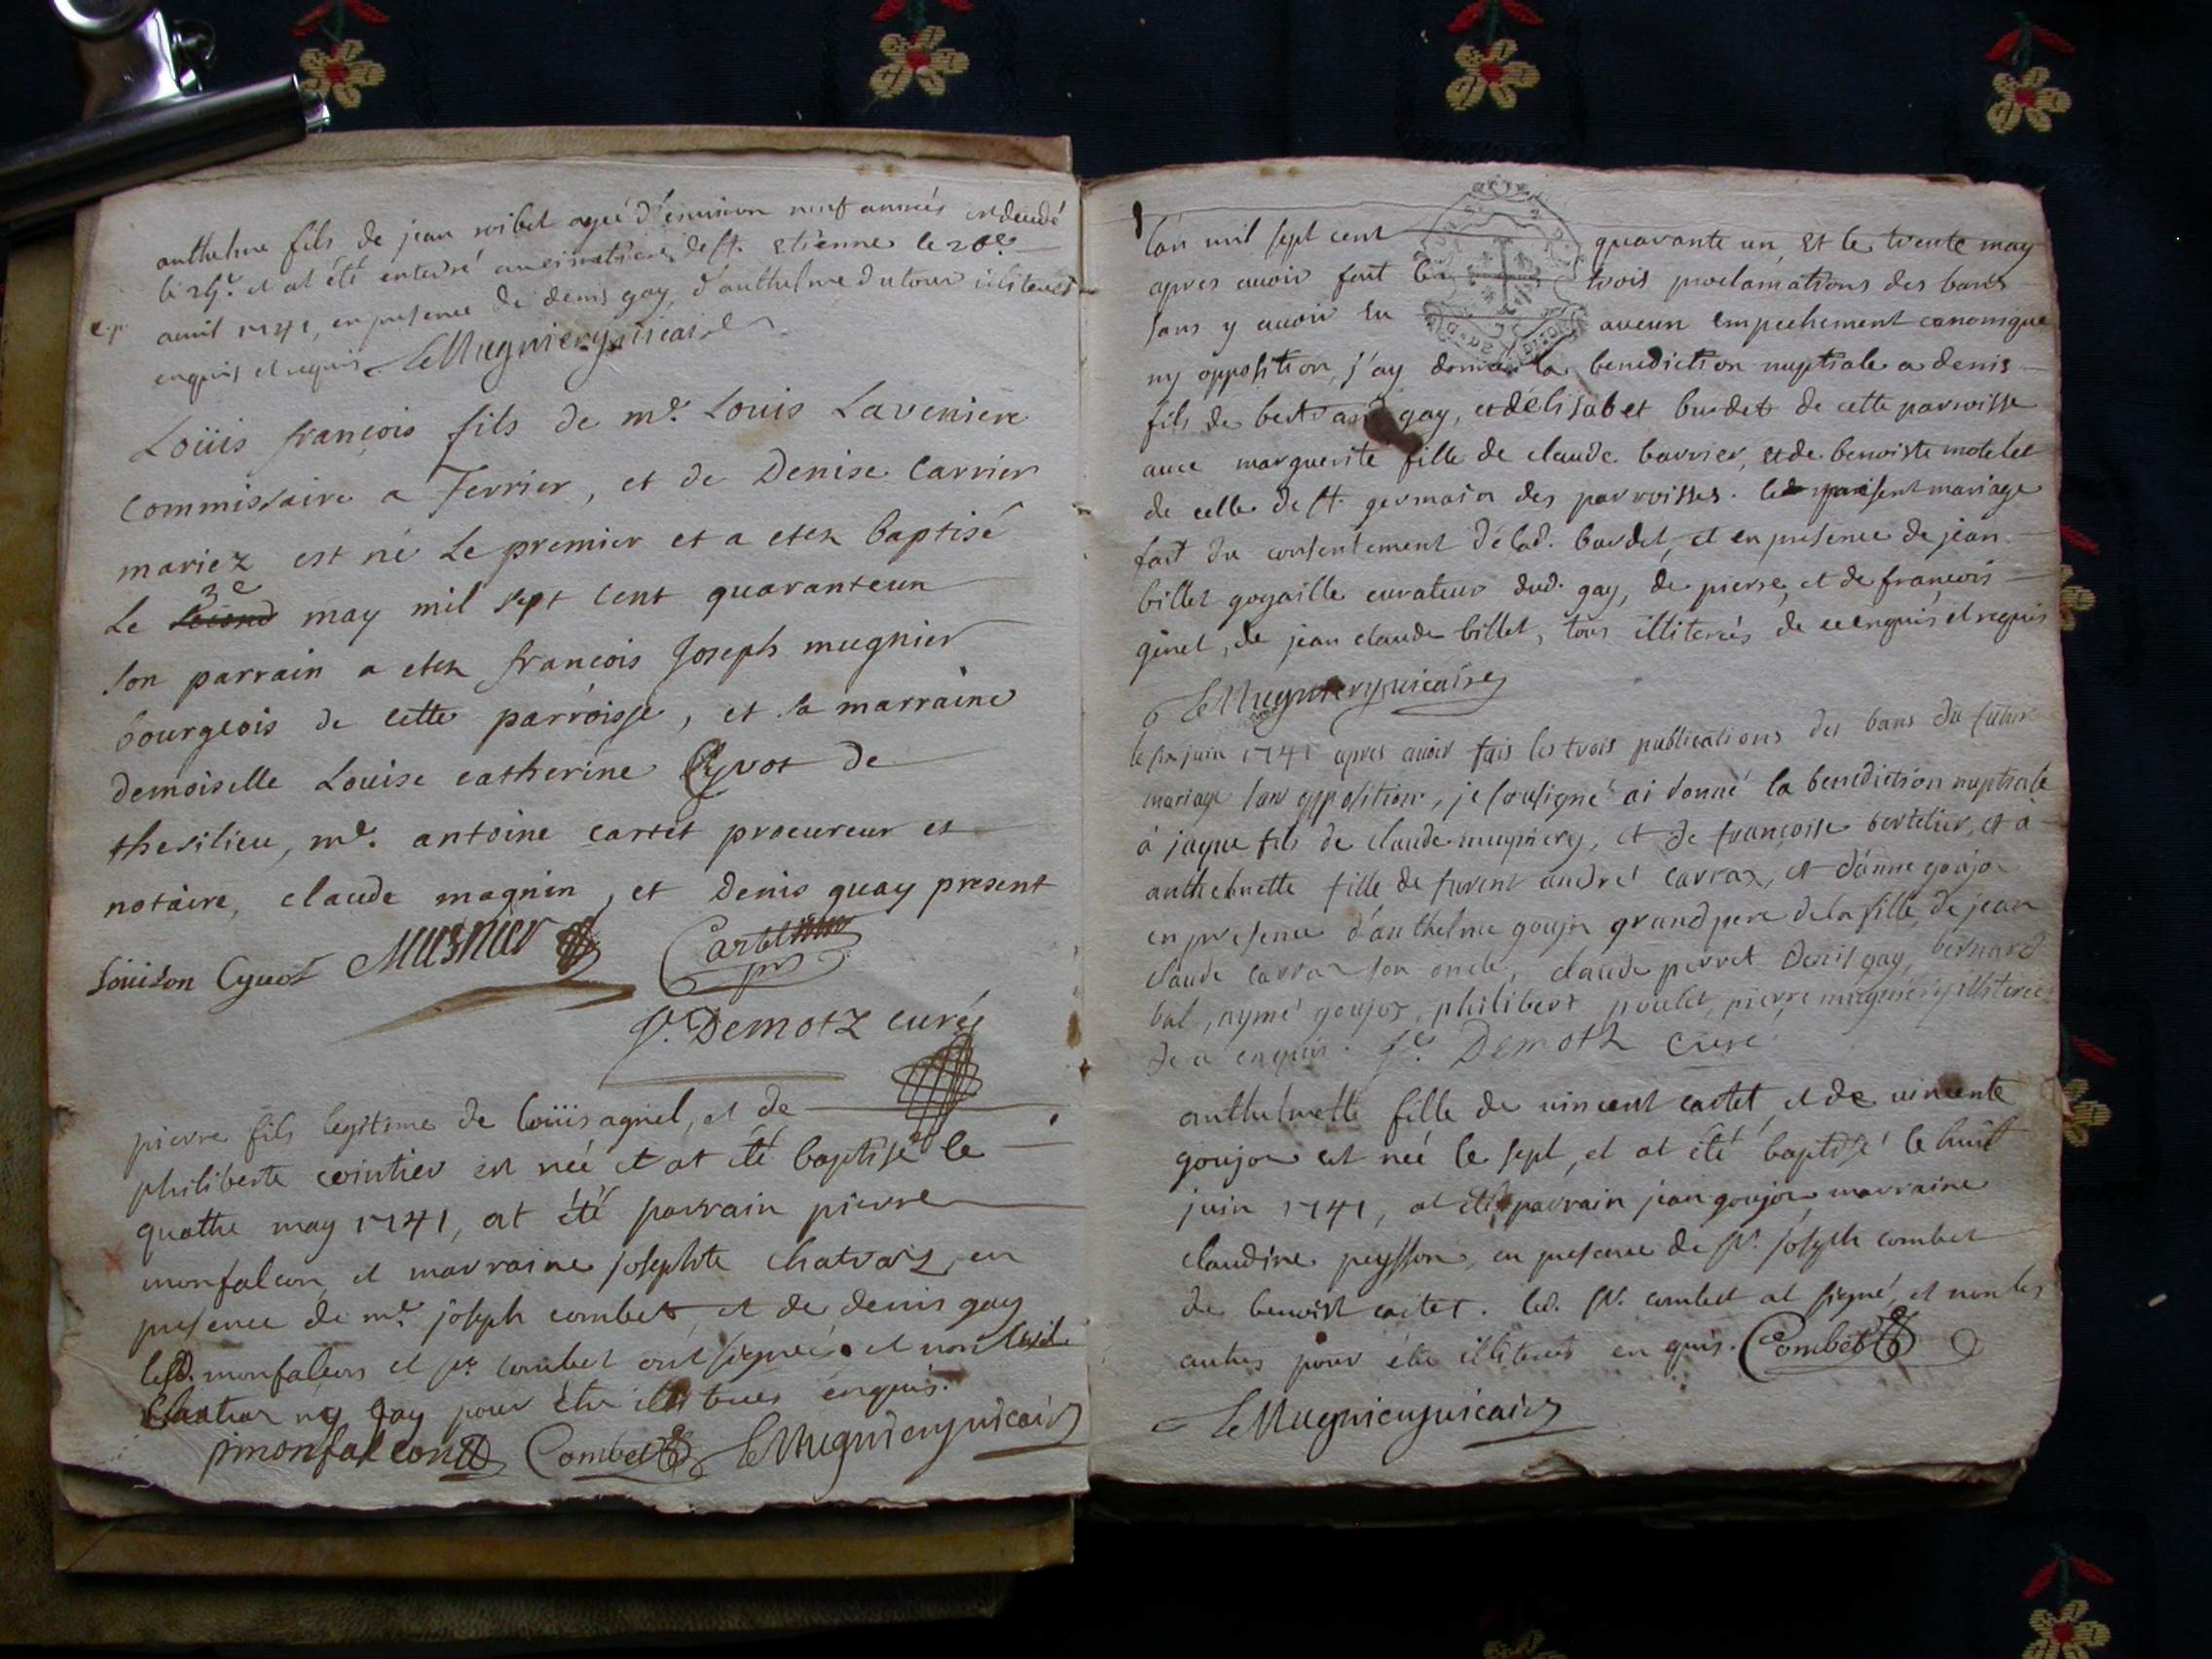 anthelme fils de jean agé d'environ neuf années est decedé
le et at été enterré au cimetiere de st. etienne le
avril 1741, en presence de denis gay, d'anthelme dutour illiterés
enquis et requis. LeMugniery vicaire
Loüis françois fils de mr. Louis Laveniere
Commissaire a Terrier, et de Denise Carrier
mariez est né Le premier et a etez baptisé
3e
Le second may mil sept cent quaranteun
son parrain a etez francois Joseph mugnier
bourgeois de cette parroisse, et sa marraine
demoiselle Louise catherine Cyvot de
thesilieu, mr. antoine cartet procureur et
notaire, claude magnin, et Denis guay present
Loüison Cyvot Musnier Cartet
Demotz curé
pierre fils legitime de loüis agnel, et de
philiberte cointier est née et at été baptisé le
quatre may 1741, at été parrain pierre
monfalcon, et marraine josephte chatraz, en
presence de mr. joseph combet, et de denis gay
lesd. monfalcon et sr. combet ont signé et non
ny gay pour être enquis.
pmonfalcon Combet LeMugniery vicaire
lan mil sept cent quarante un, et le trente may
apres avoir fait les trois proclamations des bans
sans y avoir eu aucun empechement canonique
ny opposition, j'ay donné la benediction nuptiale a denis
fils de bertrand gay, et d'élisabet burdet de cette parroisse
avec marguerite fille de claude barrier, et de benoiste motelet
de celle de st. germain des parroisses. led. present mariage
fait du consentement de lad. burdet, et en presence de jean
billet gogaille curateur dud. gay, de pierre, et de françois
ginet, de jean claude billet, tous illiterés de ce enquis et requis
LeMugniery vicaire
le six juin 1741 apres avoir fais les trois publications des bans du futur
mariage sans opposition, je sousigné ai donné la benediction nuptiale
à jaque fils de claude mugniery, et de françoise bertelier, et à
anthelmette fille de furent andré carraz, et d'anne goujon
en presence d'anthelme goujon grand pere de la fille, de jean
claude carraz son oncle, claude perret Denis gay, bernard
bal, aymé goujon, philibert poulet, pierre mugniery illiterés
de ce enquis. Demotz curé
anthelmette fille de vincent cartet, et de vincente
goujon est née le sept, et at été baptisé le huit
juin 1741, at été parrain jean goujon, marraine
claudine peysson, en presence de sr. joseph combet
de benoist cartet. led. sr. combet at signé, et non les
autres pour être illiterés enquis. Combet
LeMugniery vicaire